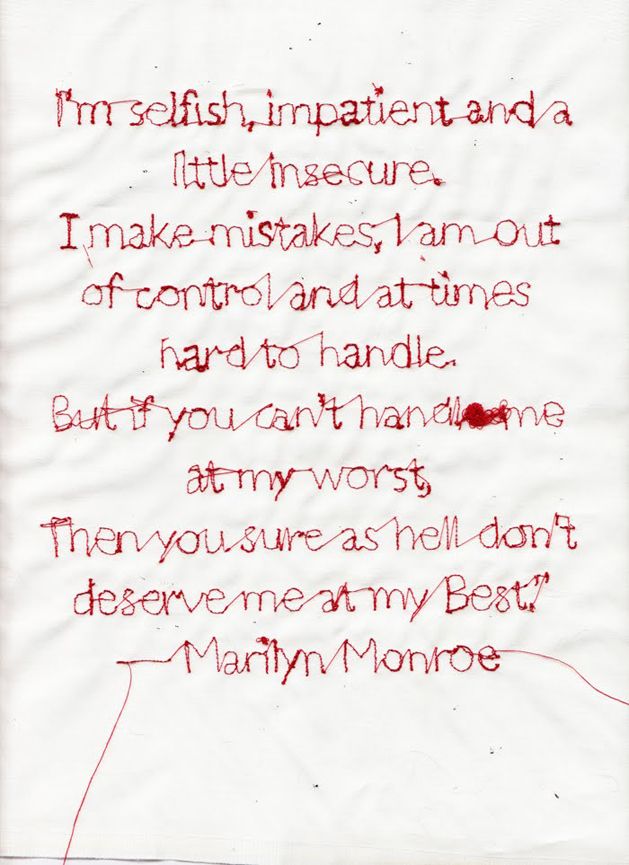 I'm selfish, impatient and a
little insecure.
I make mistakes, I am out
of control and at times
hard to handle.
But if you can't handle me
at my worst,
Then you sure as hell don't
deserve me at my Best."
— Marilyn Monroe